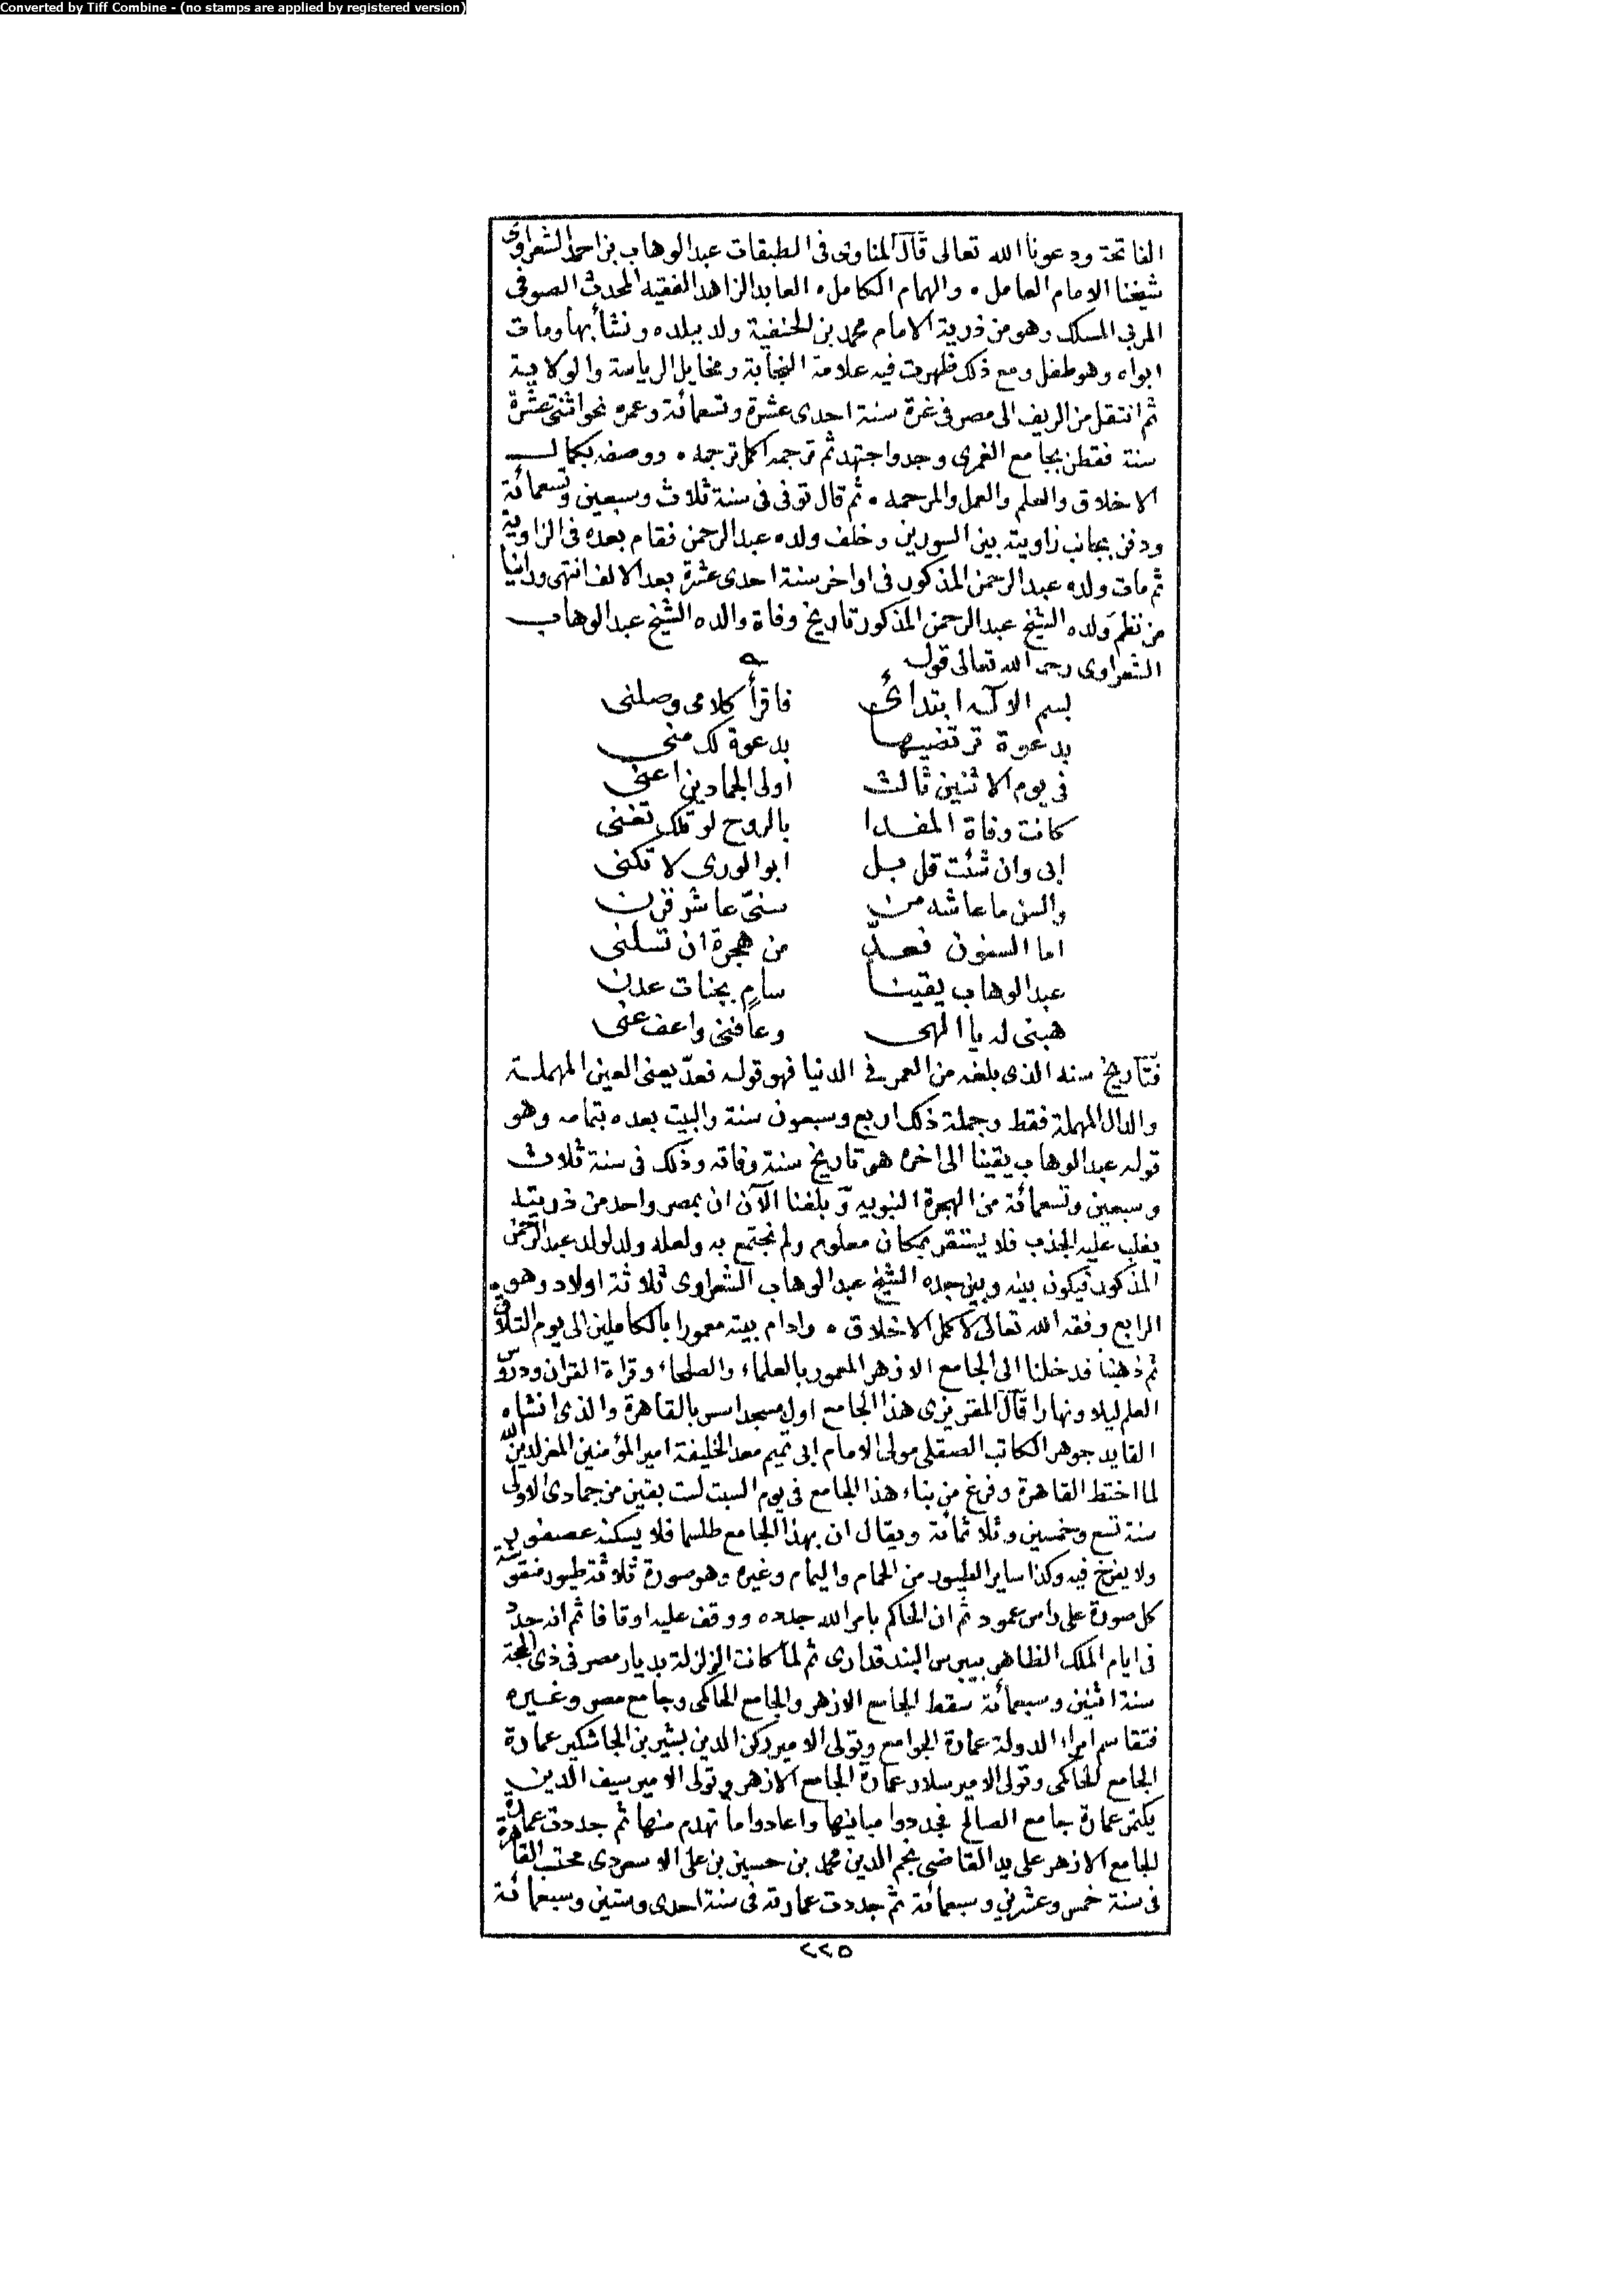 Converted by Tiff Combine - (no stamps are applied by registered version)
الفاتحة ودعونا الله تعالى قال المناوى فى الطبقات عبد الوهاب بن احمد الشعراوى
شيخنا الامام العامل • والهمام الكامل • العابد الزاهد الفقيه المحدث الصوفى
المربى المسلك وهو من ذرية الامام محمد بن الحنفية ولد ببلده ونشأ بها ومات
ابواه وهو طفل ومع ذلك ظهرت فيه علامة النجابة ومخايل الرياسة والولاية
ثم انتقل من الريف الى مصر فى غرة سنة احدى عشرة وتسعمائة وعمره نحو اثنتى عشرة
سنة فقطن بجامع الغمرى وجد واجتهد ثم ترجمه اكمل ترجمه • ووصفه بكمال
الاخلاق والعلم والعمل والمرحمه • ثم قال توفى فى سنة ثلاث وسبعين وتسعمائة
ودفن بجانب زاويته بين السورين وخلف ولده عبد الرحمن فقام بعده فى الزاوية
ثم مات ولده عبد الرحمن المذكور فى اواخر سنة احدى عشرة بعد الالف انتهى ورانيا
من نظم ولده الشيخ عبد الرحمن المذكور تاريخ وفاة والده الشيخ عبد الوهاب
الشعراوى رحمه الله تعالى قوله
بسم الاله ابتدائى فاقرأ كلامى وصلنى
بدعوة ترتضيها بدعوة لك منى
فى يوم الاثنين ثالث اولى الجمادين اعنى
كانت وفاة المفدا بالروح لو تلك تغنى
ابى وان شئت قل بل ابو الورى لا تكنى
والسن ما عاشه من سنىّ عاشر قرن
اما السنون فعدّ من هجرة ان تسلنى
عبد الوهاب يقينا سامٍ بجنات عدن
هبنى له يا الهى وعافنى واعف عنى
فتاريخ سنه الذى بلغه من العمر فى الدنيا فهو قوله فعدّ يعنى العين المهملة
والدال المهملة فقط وجملة ذلك اربع وسبعون سنة والبيت بعده بتمامه وهو
قوله عبد الوهاب يقينا الى اخره هو تاريخ سنة وفاته وذلك فى سنة ثلاث
وسبعين وتسعمائة من الهجرة النبويه وبلغنا الآن ان بمصر واحد من ذريته
يغلب عليه الجذب فلا يستقر بمكان معلوم ولم نجتمع به ولعله ولد لولد عبد الرحمن
المذكور فيكون بينه وبين جده الشيخ عبد الوهاب الشعراوى ثلاثة اولاد وهو
الرابع وفقه الله تعالى لاكمل الاخلاق • وادام بيته معمورا بالكاملين الى يوم التلاق
ثم ذهبنا فدخلنا الى الجامع الازهر المعمور بالعلماء والصلحاء وقراة القران ودروس
العلم ليلا ونهارا قال المقريزى هذا الجامع اول مسجد اسس بالقاهرة والذى انشاه
القايد جوهر الكاتب الصقلى مولى الامام ابى تميم معد الخليفة امير المؤمنين المعز لدين الله
لما اختط القاهرة وفرغ من بناء هذا الجامع فى يوم السبت لست بقين من جمادى الاولى
سنة تسع وخمسين وثلاثمائة ويقال ان بهذا الجامع طلسما فلا يسكنه عصفور
ولا يفرخ فيه وكذا ساير الطيور من الحمام واليمام وغيره وهو صورة ثلاثة طيور منقوشة
كل صورة على راس عمود ثم ان الحاكم بامر الله جدده ووقف عليه اوقافا ثم انه جدد
فى ايام الملك الظاهر بيبرس البندقدارى ثم لما كانت الزلزلة بديار مصر فى ذى الحجة
سنة اثنين وسبعمائة سقط الجامع الازهر والجامع الحاكمى وجامع مصر وغيره
فتقاسم امراء الدولة عمارة الجوامع وتولى الامير ركن الدين بشير بن الجاشنكير عمارة
الجامع الحاكمى وتولى الامير سلار عمارة الجامع الازهر وتولى الامير سيف الدين
بكتمر عمارة جامع الصالح فجددوا مبانيها واعادوا ما تهدم منها ثم جددت عمارة
الجامع الازهر على يد القاضى نجم الدين محمد بن حسين بن على الاسعردى محتسب القاهرة
فى سنة خمس وعشرين وسبعمائة ثم جددت عمارته فى سنة احدى وستين وسبعمائة
٢٢٥